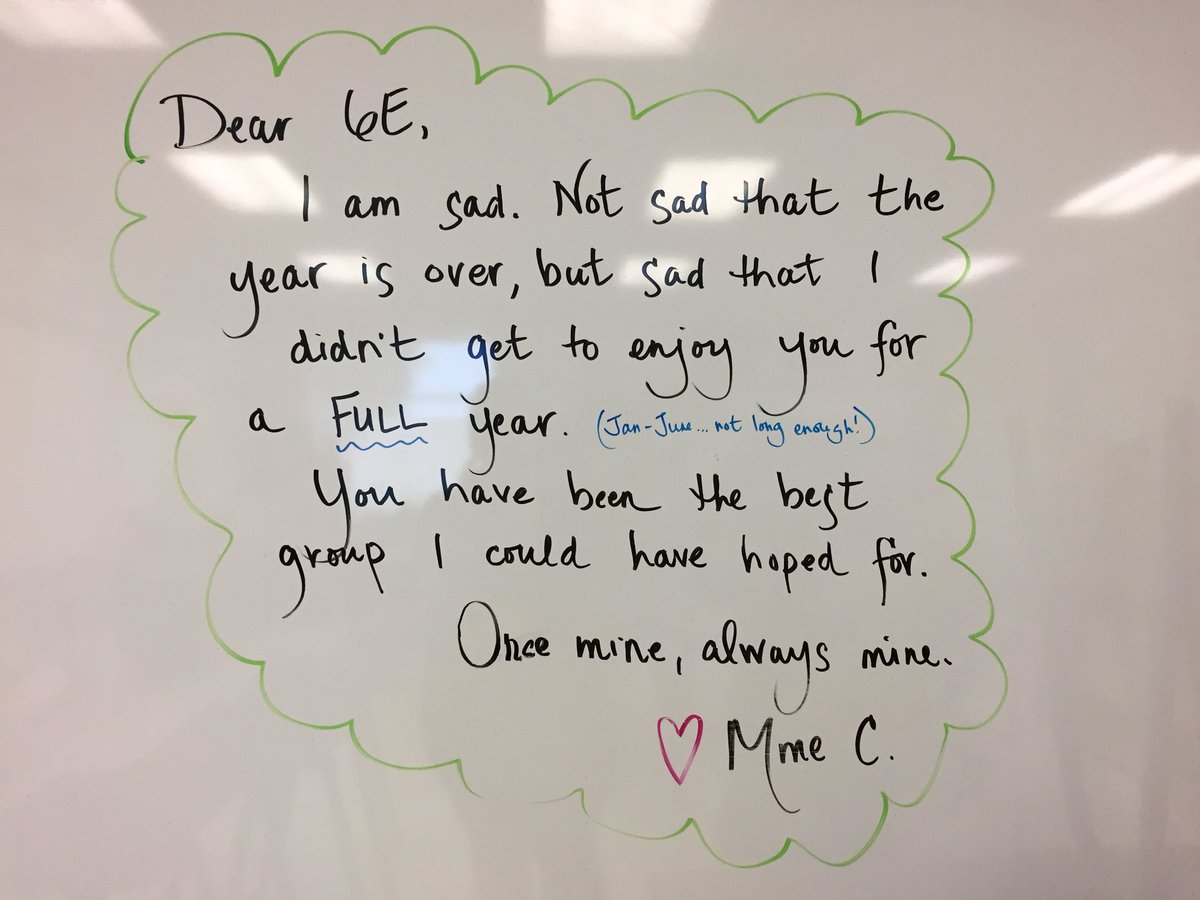 Dear 6E,
I am sad. Not sad that the
year is over, but sad that I
didn't get to enjoy you for
a FULL year. (Jan-June... not long enough!)
You have been the best
group I could have hoped for.
Once mine, always mine.
♡ Mme C.